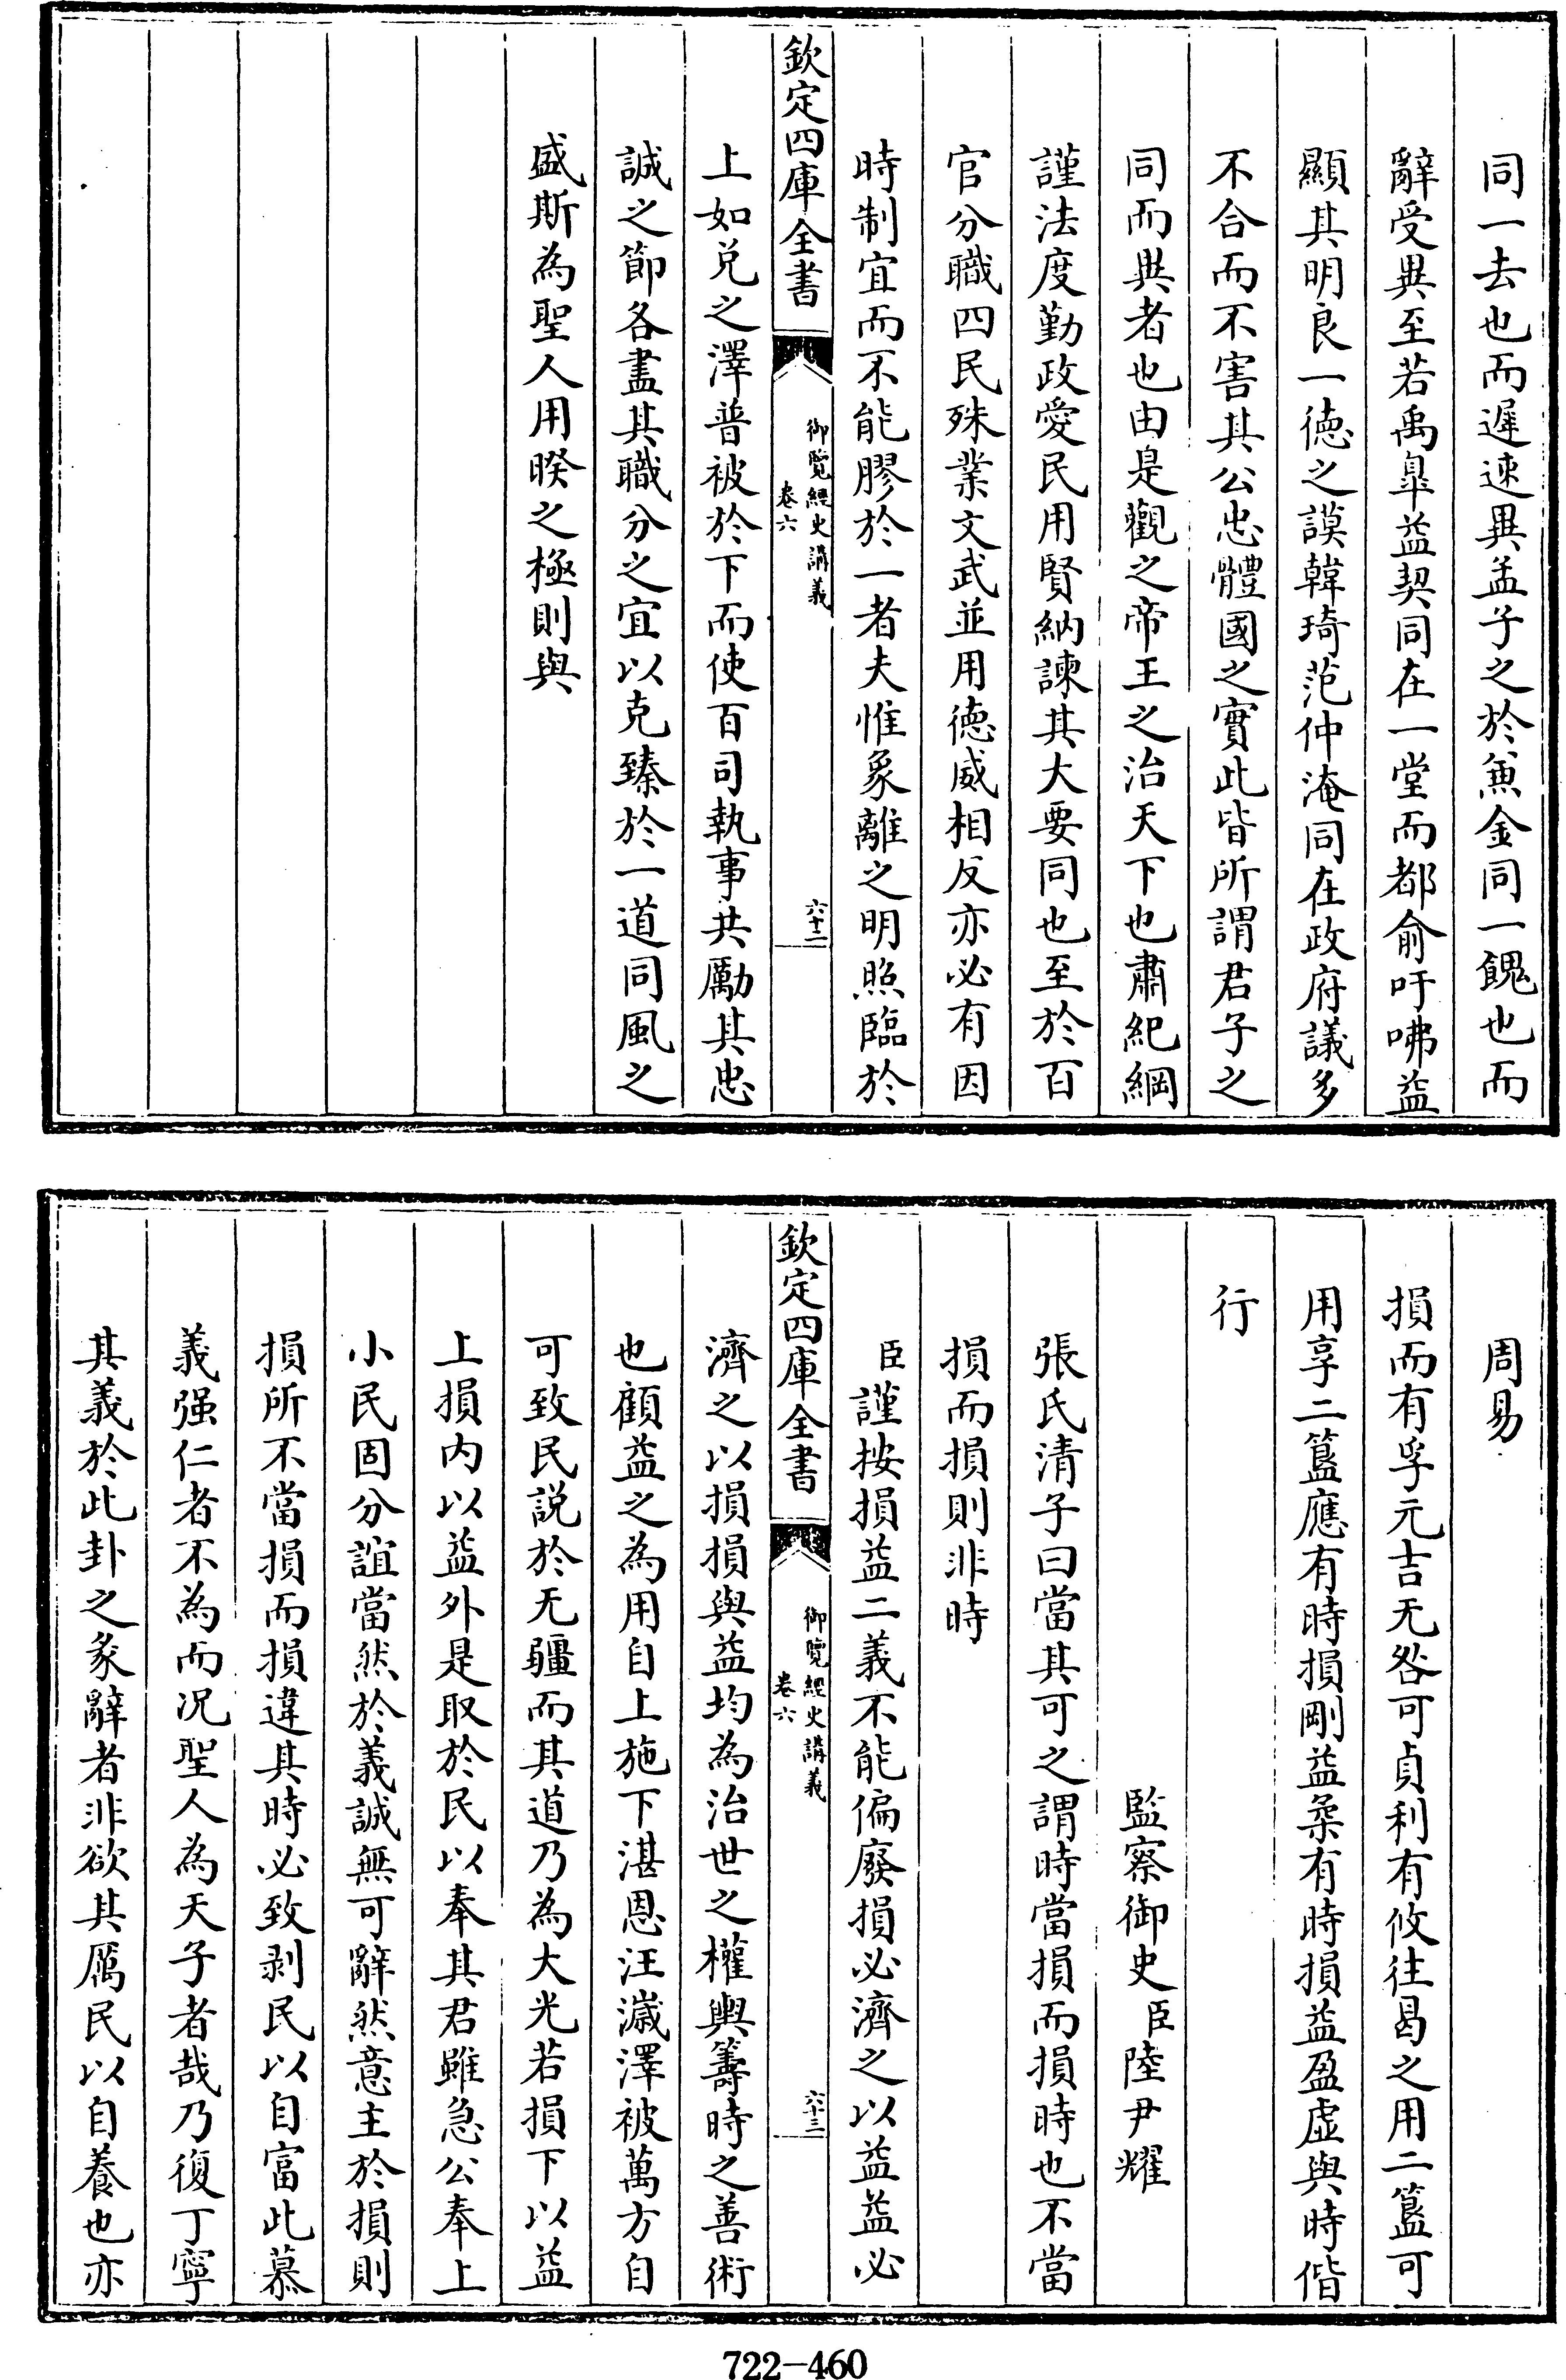 同一去也而遲速異孟子之於兼金同一餽也而
辭受異至若禹臯益契同在一堂而都俞吁咈益
顯其明良一德之謨韓琦范仲淹同在政府議多
不合而不害其公忠體國之實此皆所謂君子之
同而異者也由是觀之帝王之治天下也肅紀綱
謹法度勤政愛民用賢納諫其大要同也至於百
官分職四民殊業文武並用德威相反亦必有因
時制宜而不能膠於一者夫惟象離之明照臨於
欽定四庫全書
御覽經史講義
卷六
六十二
上如兑之澤普被於下而使百司執事共勵其忠
誠之節各盡其職分之宜以克臻於一道同風之
盛斯為聖人用暌之極則與
周易
損而有孚元吉无咎可貞利有攸往曷之用二簋可
用享二簋應有時損剛益柔有時損益盈虛與時偕
行
監察御史臣陸尹耀
張氏清子曰當其可之謂時當損而損時也不當
損而損則非時
臣謹按損益二義不能偏廢損必濟之以益益必
欽定四庫全書
御覽經史講義
卷六
六十三
濟之以損損與益均為治世之權輿籌時之善術
也顧益之為用自上施下湛恩汪濊澤被萬方自
可致民説於无疆而其道乃為大光若損下以益
上損内以益外是取於民以奉其君雖急公奉上
小民固分誼當然於義誠無可辭然意主於損則
損所不當損而損違其時必致剥民以自富此慕
義强仁者不為而况聖人為天子者哉乃復丁寧
其義於此卦之彖辭者非欲其厲民以自養也亦
722-460